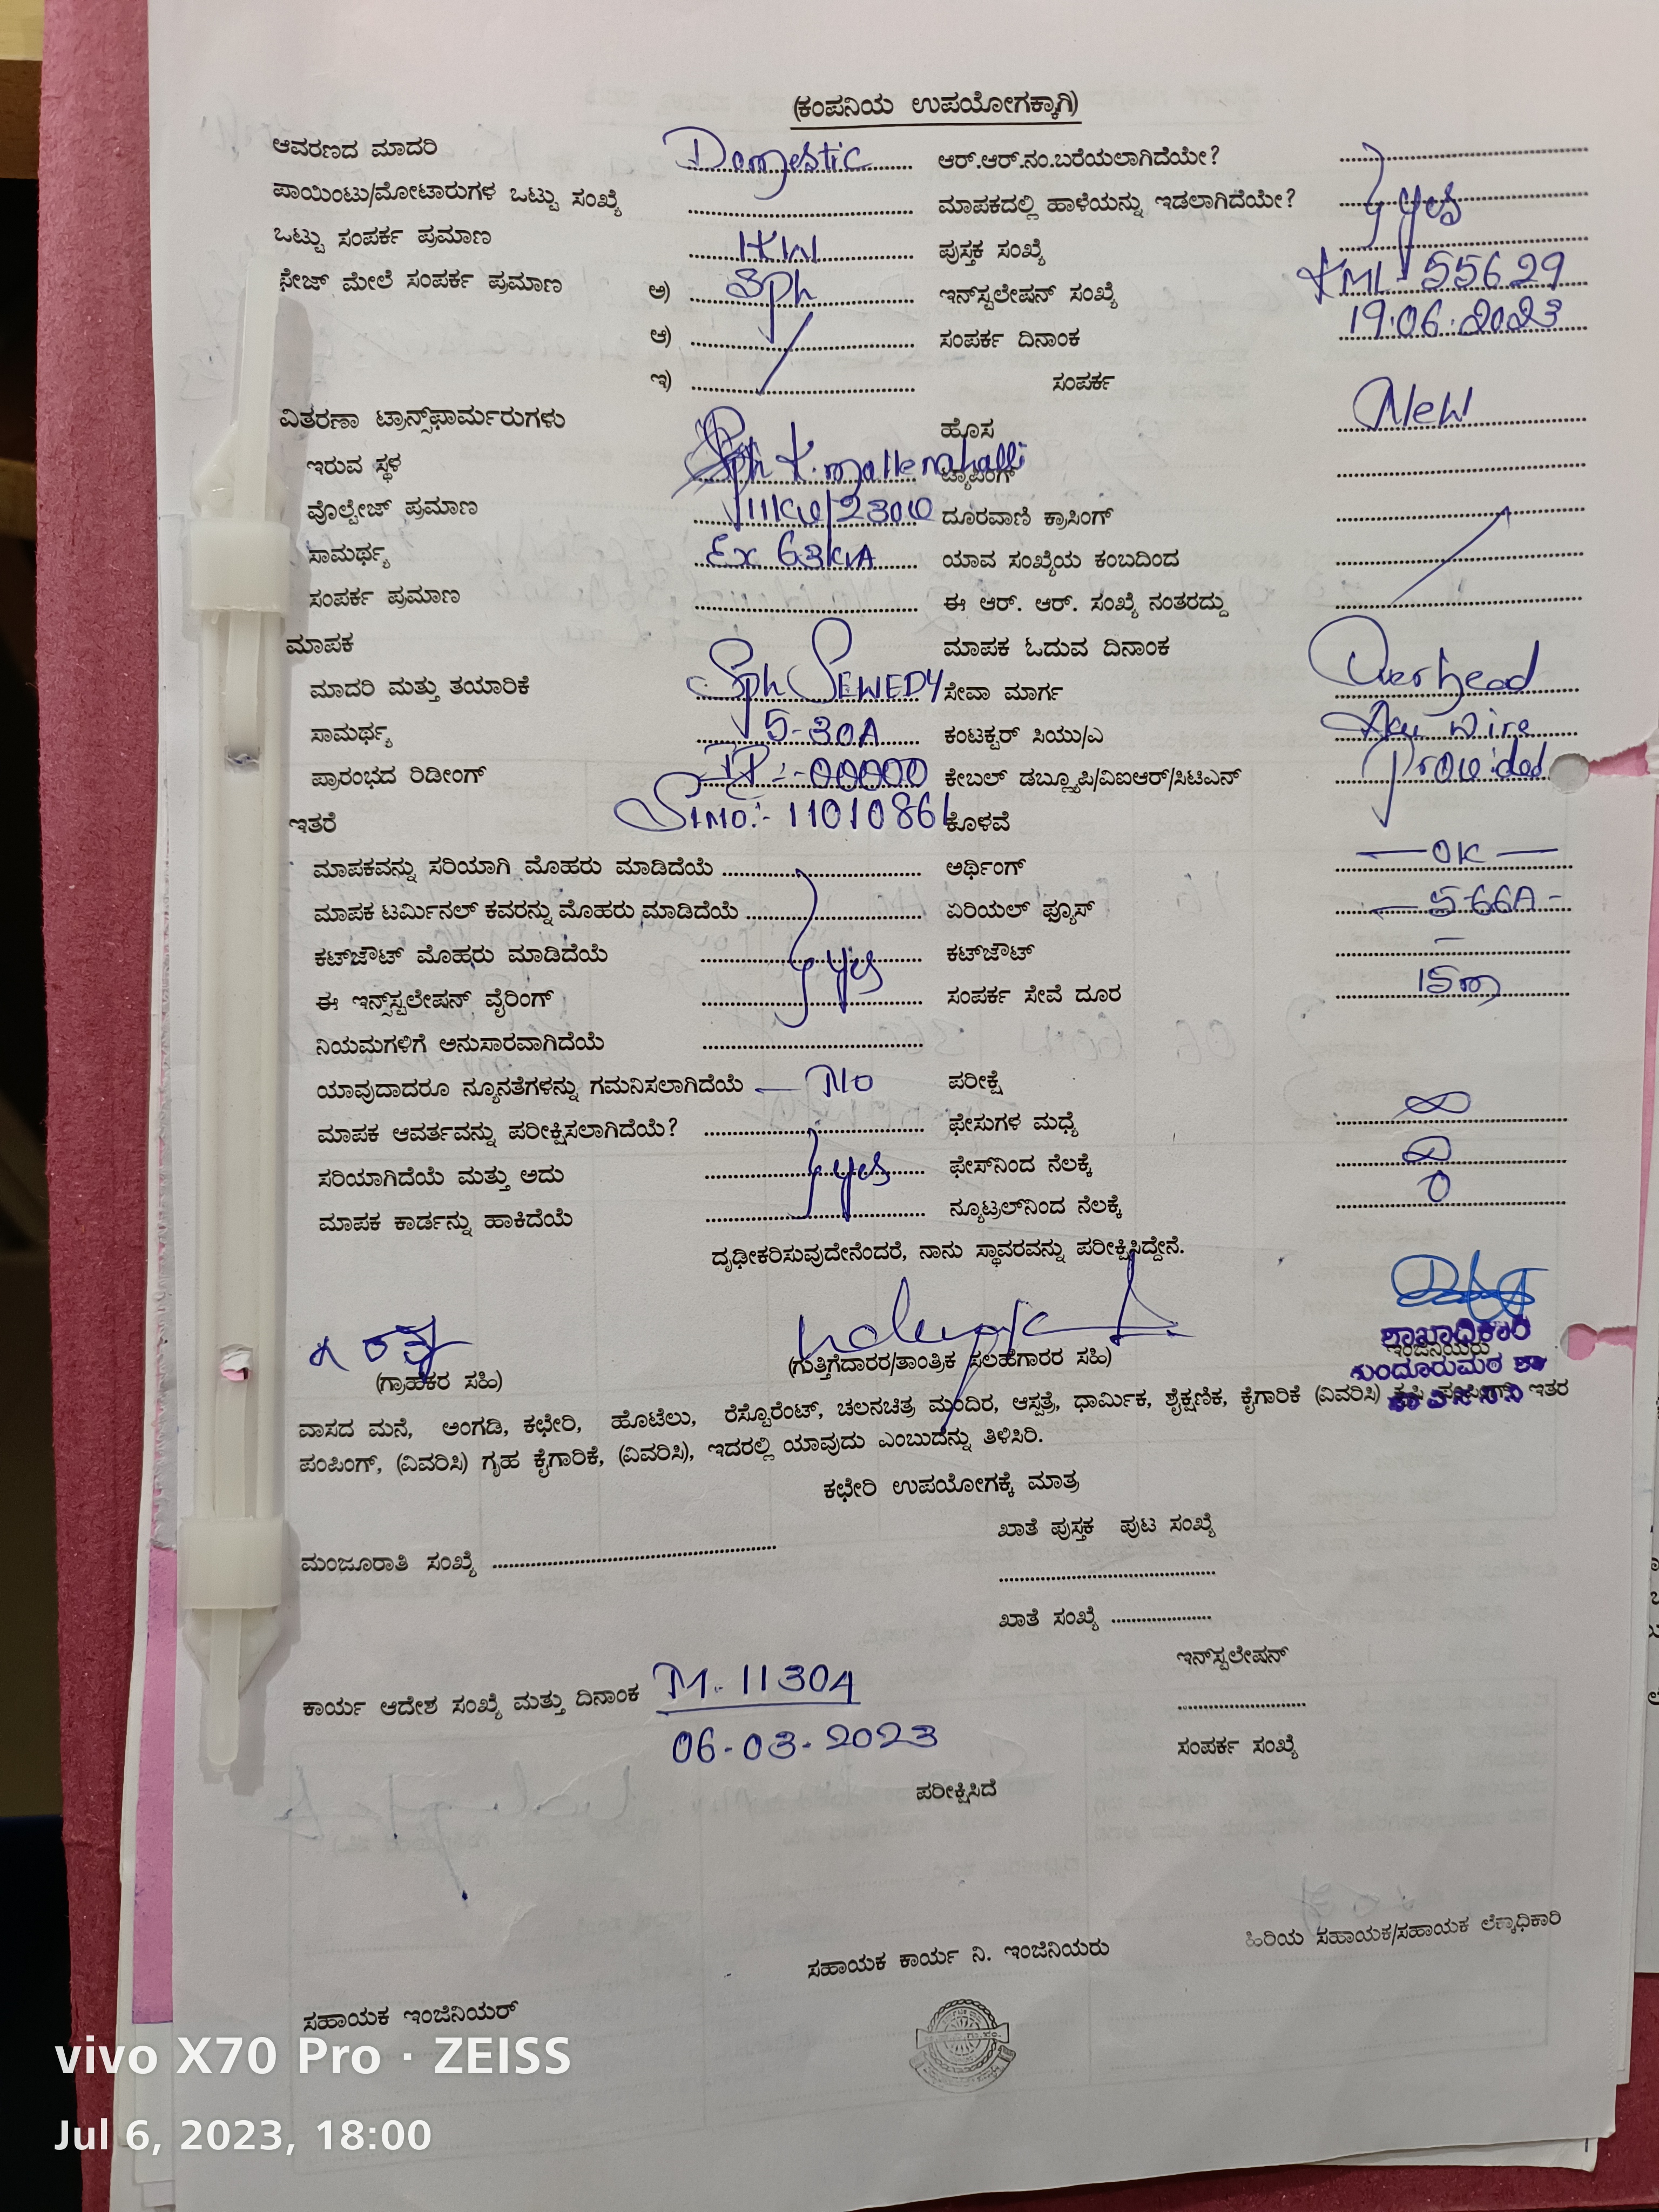 (ಕಂಪನಿಯ ಉಪಯೋಗಕ್ಕಾಗಿ)
ಆವರಣದ ಮಾದರಿ Domestic ಆರ್.ಆರ್.ನಂ.ಬರೆಯಲಾಗಿದೆಯೇ?
ಪಾಯಿಂಟು/ಮೋಟಾರುಗಳ ಒಟ್ಟು ಸಂಖ್ಯೆ ಮಾಪಕದಲ್ಲಿ ಹಾಳೆಯನ್ನು ಇಡಲಾಗಿದೆಯೇ? yes
ಒಟ್ಟು ಸಂಪರ್ಕ ಪ್ರಮಾಣ 1KW ಪುಸ್ತಕ ಸಂಖ್ಯೆ
ಫೇಜ್ ಮೇಲೆ ಸಂಪರ್ಕ ಪ್ರಮಾಣ ಅ) Sph ಇನ್‌ಸ್ಟಲೇಷನ್ ಸಂಖ್ಯೆ KML-55629
ಆ) ಸಂಪರ್ಕ ದಿನಾಂಕ 19.06.2023
ಇ) ಸಂಪರ್ಕ
ವಿತರಣಾ ಟ್ರಾನ್ಸ್‌ಫಾರ್ಮರುಗಳು ಹೊಸ New
ಇರುವ ಸ್ಥಳ K.mallenahalli ಟ್ಯಾಪಿಂಗ್
ವೊಲ್ಟೇಜ್ ಪ್ರಮಾಣ 11KV/230V ದೂರವಾಣಿ ಕ್ರಾಸಿಂಗ್
ಸಾಮರ್ಥ್ಯ Ex 63KVA ಯಾವ ಸಂಖ್ಯೆಯ ಕಂಬದಿಂದ
ಸಂಪರ್ಕ ಪ್ರಮಾಣ ಈ ಆರ್. ಆರ್. ಸಂಖ್ಯೆ ನಂತರದ್ದು
ಮಾಪಕ ಮಾಪಕ ಓದುವ ದಿನಾಂಕ
ಮಾದರಿ ಮತ್ತು ತಯಾರಿಕೆ Sph SEWEDY ಸೇವಾ ಮಾರ್ಗ Overhead
ಸಾಮರ್ಥ್ಯ 5-30A ಕಂಟಕ್ಟರ್ ಸಿಯು/ಎ wire
ಪ್ರಾರಂಭದ ರಿಡೀಂಗ್ 00000 ಕೇಬಲ್ ಡಬ್ಲ್ಯೂಪಿ/ವಿಐಆರ್/ಸಿಟಿಎನ್ Provided
ಇತರೆ Slno:- 11010861 ಕೊಳವೆ
ಮಾಪಕವನ್ನು ಸರಿಯಾಗಿ ಮೊಹರು ಮಾಡಿದೆಯೆ ಅರ್ಥಿಂಗ್ — OK —
ಮಾಪಕ ಟರ್ಮಿನಲ್ ಕವರನ್ನು ಮೊಹರು ಮಾಡಿದೆಯೆ ಏರಿಯಲ್ ಫ್ಯೂಸ್ — 5-66A -
ಕಟ್‌ಜೌಟ್ ಮೊಹರು ಮಾಡಿದೆಯೆ yes ಕಟ್‌ಜೌಟ್ –
ಈ ಇನ್‌ಸ್ಟಲೇಷನ್ ವೈರಿಂಗ್ ಸಂಪರ್ಕ ಸೇವೆ ದೂರ 15m
ನಿಯಮಗಳಿಗೆ ಅನುಸಾರವಾಗಿದೆಯೆ
ಯಾವುದಾದರೂ ನ್ಯೂನತೆಗಳನ್ನು ಗಮನಿಸಲಾಗಿದೆಯೆ — No ಪರೀಕ್ಷೆ
ಮಾಪಕ ಆವರ್ತವನ್ನು ಪರೀಕ್ಷಿಸಲಾಗಿದೆಯೆ? ಫೇಸುಗಳ ಮಧ್ಯೆ ∞
ಸರಿಯಾಗಿದೆಯೆ ಮತ್ತು ಅದು yes ಫೇಸ್‌ನಿಂದ ನೆಲಕ್ಕೆ ∞
ಮಾಪಕ ಕಾರ್ಡನ್ನು ಹಾಕಿದೆಯೆ ನ್ಯೂಟ್ರಲ್‌ನಿಂದ ನೆಲಕ್ಕೆ 0
ದೃಢೀಕರಿಸುವುದೇನೆಂದರೆ, ನಾನು ಸ್ಥಾವರವನ್ನು ಪರೀಕ್ಷಿಸಿದ್ದೇನೆ.
ಶಾಖಾಧಿಕಾರಿ
(ಗ್ರಾಹಕರ ಸಹಿ) (ಗುತ್ತಿಗೆದಾರರ/ತಾಂತ್ರಿಕ ಸಲಹೆಗಾರರ ಸಹಿ) ಇಂಜಿನಿಯರು
ವಾಸದ ಮನೆ, ಅಂಗಡಿ, ಕಛೇರಿ, ಹೊಟೆಲು, ರೆಸ್ಟೊರೆಂಟ್, ಚಲನಚಿತ್ರ ಮಂದಿರ, ಆಸ್ಪತ್ರೆ, ಧಾರ್ಮಿಕ, ಶೈಕ್ಷಣಿಕ, ಕೈಗಾರಿಕೆ (ವಿವರಿಸಿ) ಕೃಷಿ ಪಂಪಿಂಗ್, ಇತರ
ಪಂಪಿಂಗ್, (ವಿವರಿಸಿ) ಗೃಹ ಕೈಗಾರಿಕೆ, (ವಿವರಿಸಿ), ಇದರಲ್ಲಿ ಯಾವುದು ಎಂಬುದನ್ನು ತಿಳಿಸಿರಿ.
ಕಛೇರಿ ಉಪಯೋಗಕ್ಕೆ ಮಾತ್ರ
ಖಾತೆ ಪುಸ್ತಕ ಪುಟ ಸಂಖ್ಯೆ
ಮಂಜೂರಾತಿ ಸಂಖ್ಯೆ
ಖಾತೆ ಸಂಖ್ಯೆ
ಇನ್‌ಸ್ಟಲೇಷನ್
ಕಾರ್ಯ ಆದೇಶ ಸಂಖ್ಯೆ ಮತ್ತು ದಿನಾಂಕ M. 11304
06-03-2023 ಸಂಪರ್ಕ ಸಂಖ್ಯೆ
ಪರೀಕ್ಷಿಸಿದೆ
ಹಿರಿಯ ಸಹಾಯಕ/ಸಹಾಯಕ ಲೆಕ್ಕಾಧಿಕಾರಿ
ಸಹಾಯಕ ಕಾರ್ಯ ನಿ. ಇಂಜಿನಿಯರು
ಸಹಾಯಕ ಇಂಜಿನಿಯರ್
vivo X70 Pro · ZEISS
Jul 6, 2023, 18:00